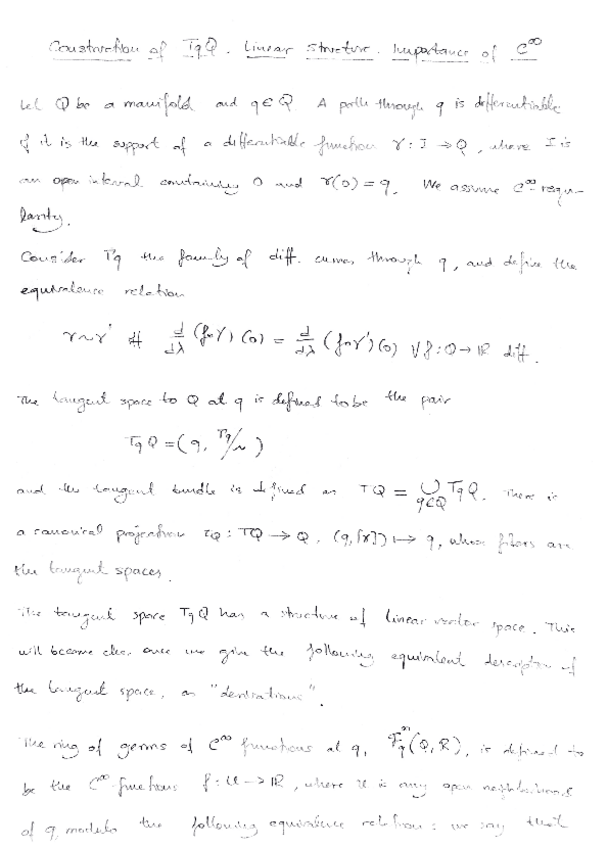 Construction of TqQ. Linear structure. Importance of C∞
Let Q be a manifold and q∈Q A path through q is differentiable
if it is the support of a differentiable function γ: I → Q, where I is
an open interval containing 0 and γ(0) = q. We assume C∞-regu-
larity.
Consider Γq the family of diff. curves through q, and define the
equivalence relation
γ~γ' iff d/dλ (f∘γ)(0) = d/dλ (f∘γ')(0) ∀f: Q→ℝ diff.
The tangent space to Q at q is defined to be the pair
TqQ = (q, Γq/~)
and the tangent bundle is defined as TQ = ⋃q∈Q TqQ. There is
a canonical projection τQ: TQ → Q, (q,[γ]) ↦ q, whose fibers are
the tangent spaces.
The tangent space TqQ has a structure of linear vector space. This
will become clear once we give the following equivalent description of
the tangent space, as "derivations".
The ring of germs of C∞ functions at q, ℱq∞(Q,ℝ), is defined to
be the C∞ functions f: U → ℝ, where U is any open neighborhood
of q, modulo the following equivalence relation: we say that